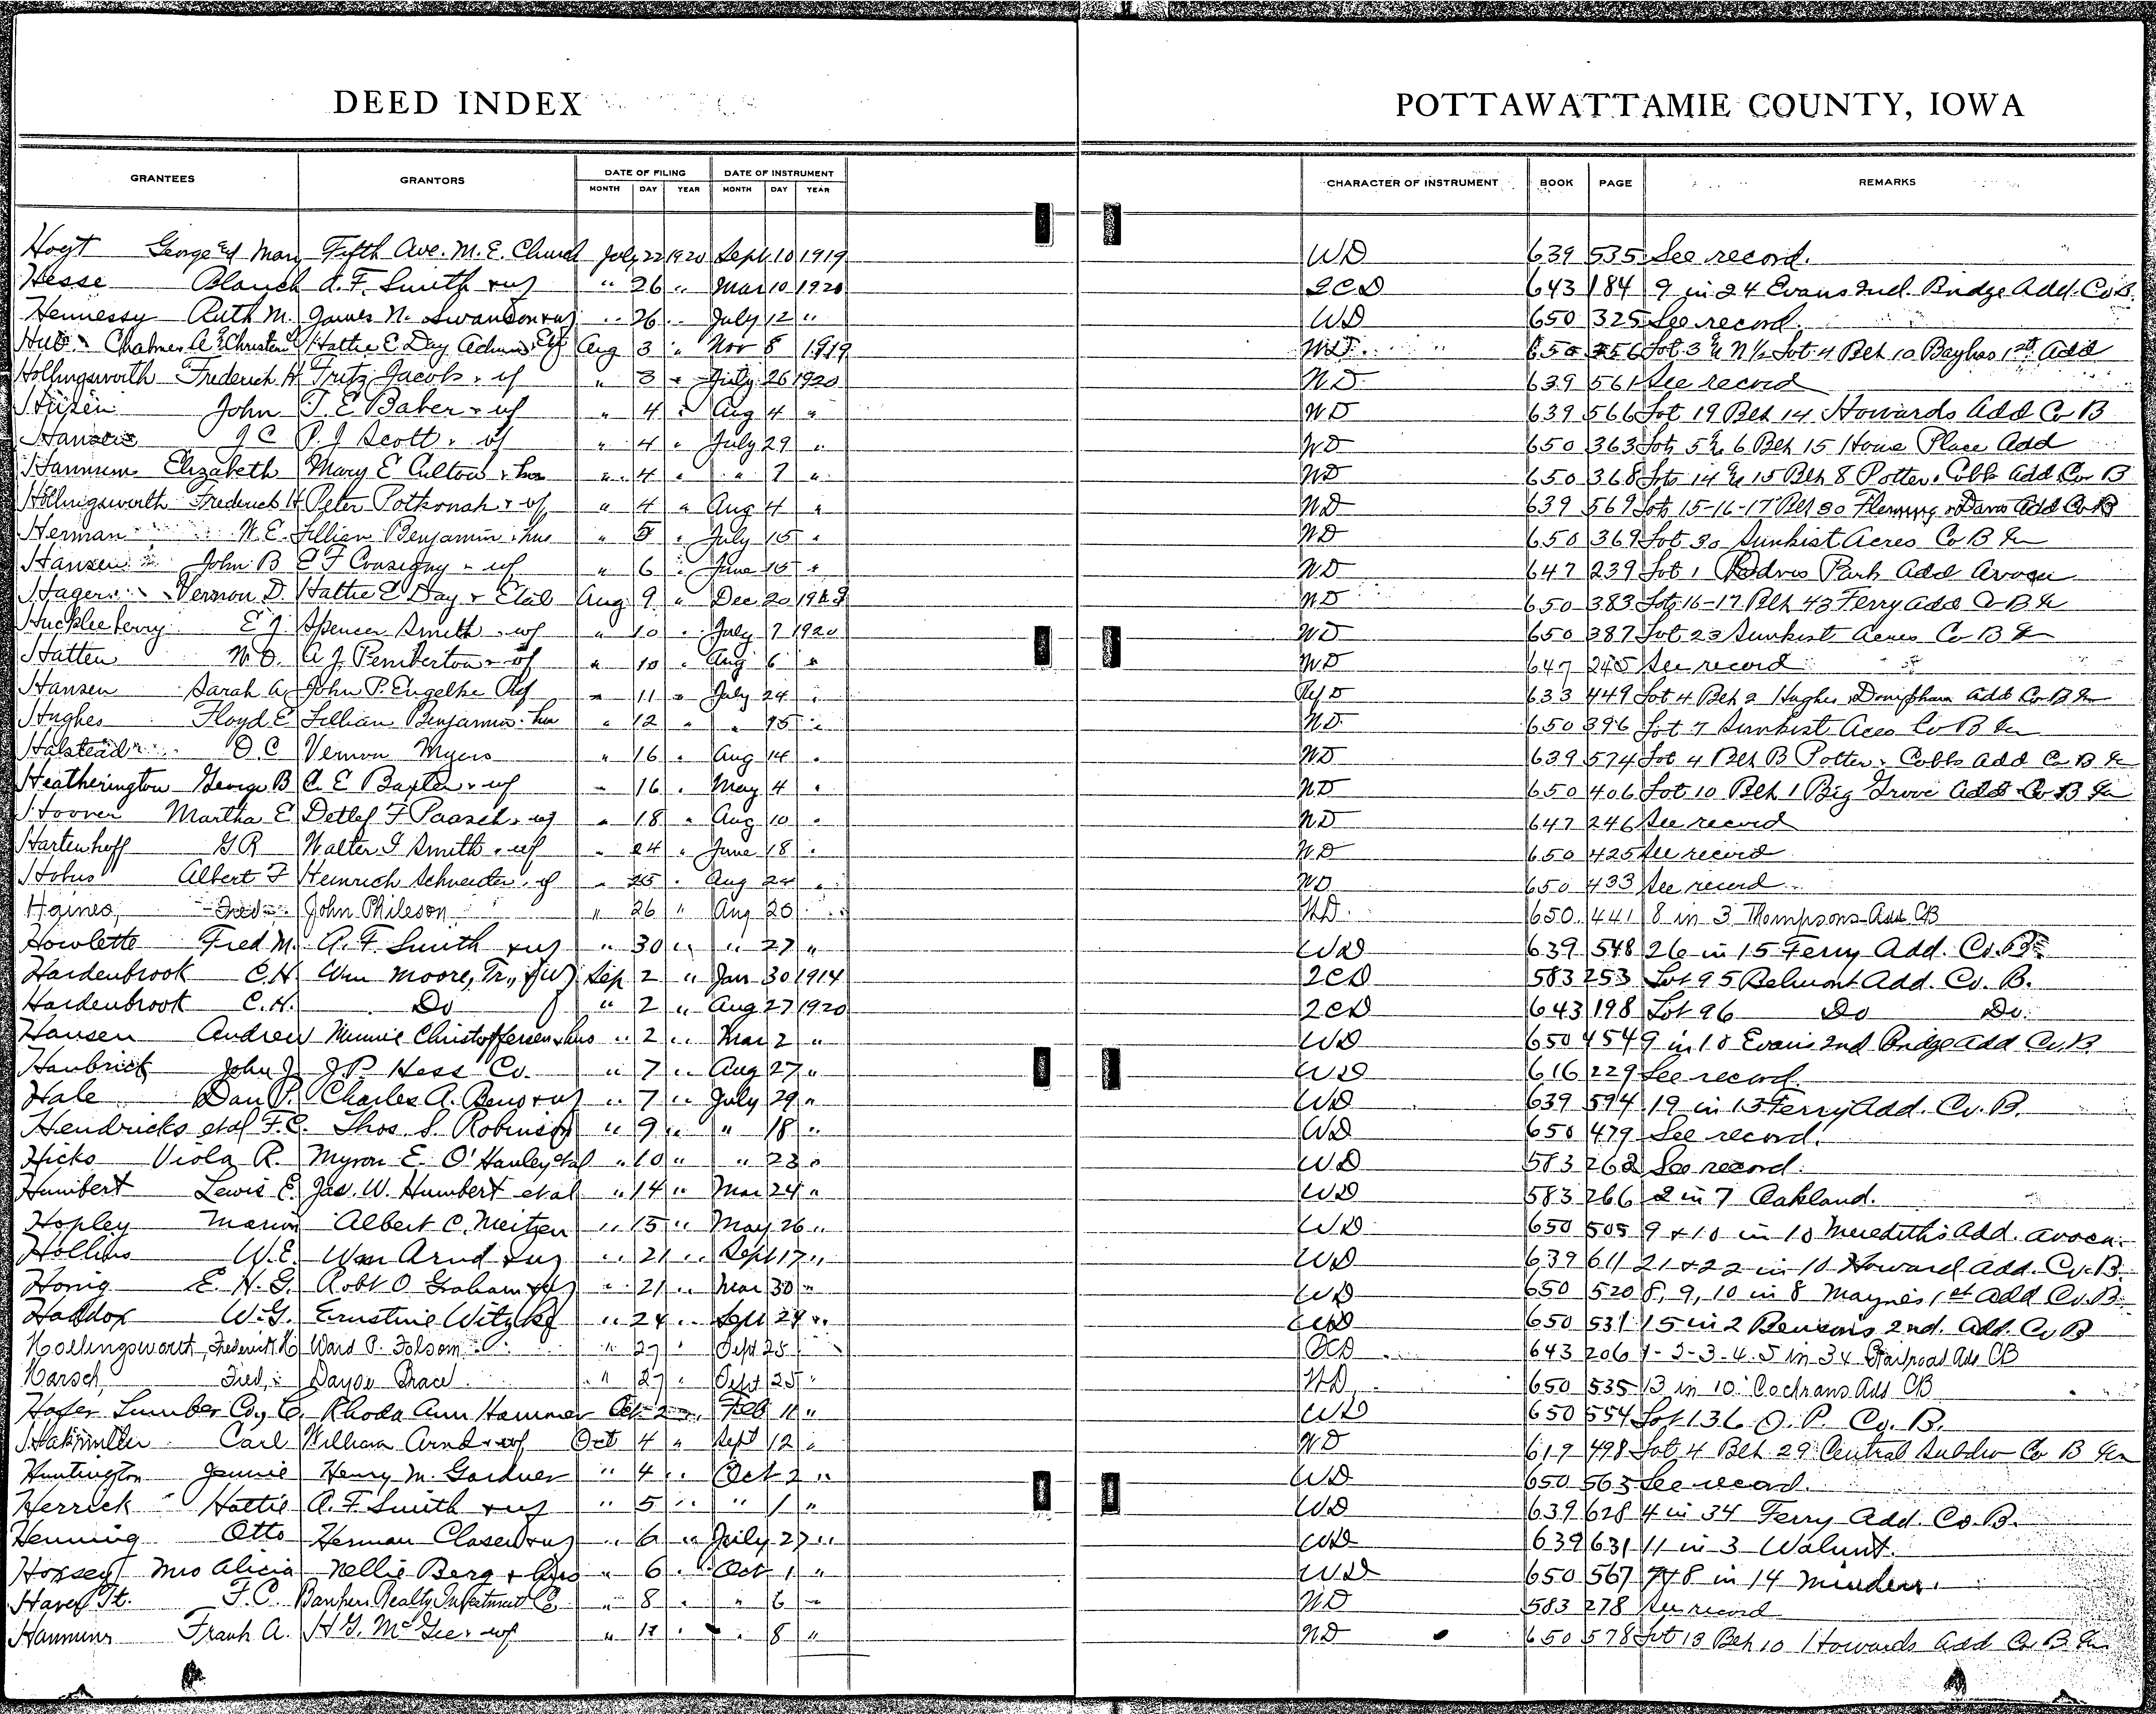 DEED INDEX
POTTAWATTAMIE COUNTY, IOWA
GRANTEES GRANTORS DATE OF FILING DATE OF INSTRUMENT CHARACTER OF INSTRUMENT BOOK PAGE REMARKS
MONTH DAY YEAR MONTH DAY YEAR
Hoyt George and Mary Fifth Ave. M. E. Church July 22 1920 Sept 10 1919 WD 639 535 See record.
Hesse Blanch A. F. Smith & wf " 26 " Mar 10 1920 QCD 643 184 9 in 24 Evans 2nd. Bridge Add. Co. B.
Hennessy Ruth M. James N. Swanson & wf " 26 " July 12 " WD 650 325 See record.
Chalmer A & Christen Hattie E Day Admin Aug 3 " Nov 8 1919 WD 650 356 Lot 3 & N½ Lot 4 Blk 10 Bayliss 1st Add
Hollingsworth Frederick H Fritz Jacobs & wf " 3 " July 26 1920 WD 639 561 See record
John T. E Baber & wf " 4 " Aug 4 " WD 639 566 Lot 19 Blk 14 Howards Add Co B
J C P. J Scott & wf " 4 " July 29 " WD 650 363 Lots 5 & 6 Blk 15 Home Place Add
Elizabeth Mary E Culton & hus " 4 " " 7 " WD 650 368 Lots 14 & 15 Blk 8 Potter & Cobb Add Co B
Hollingsworth Frederick H Peter Potkonah & wf " 4 " Aug 4 " WD 639 569 Lots 15-16-17 Blk 30 Fleming & Davis Add Co B
Herman W. E. Lillian Benjamin & hus " 5 " July 15 " WD 650 369 Lot 30 Sunkist Acres Co B Ia
Hansen John B E F Consigny & wf " 6 " June 15 " WD 647 239 Lot 1 Park Add Avoca
Hager Vernon D. Hattie E Day & Etal Aug 9 " Dec 20 WD 650 383 Lots 16-17 Blk 43 Ferry Add Co B Ia
Huckleberry E J. Spencer Smith & wf " 10 " July 7 1920 WD 650 387 Lot 23 Sunkist Acres Co B Ia
Hatten W. O. A J. Pemberton & wf " 10 " Aug 6 " WD 647 245 See record
Hansen Sarah A John P. Engelke Ref " 11 " July 24 " Ref D 633 449 Lot 4 Blk 2 Hughes & Doniphan Add Co B Ia
Hughes Floyd E Lillian Benjamin & hus " 12 " " 15 " WD 650 396 Lot 7 Sunkist Aces Co B Ia
Halstead O. C Vernon Myers " 16 " Aug 14 " WD 639 574 Lot 4 Blk B Potter & Cobbs Add Co B Ia
Heatherington George B C. E Baxter & wf " 16 " May 4 " WD 650 406 Lot 10 Blk 1 Big Grove Add Co B Ia
Hoover Martha E Detlef F Paasch & wf " 18 " Aug 10 " WD 647 246 See record
Hartenhoff G R Walter I Smith & wf " 24 " June 18 " WD 650 425 See record
Hobus Albert F Heinrich Schneider & wf " 25 " Aug 24 " WD 650 433 See record
Haines, Fred John Phileson " 26 " Aug 20 " WD 650 441 8 in 3 Thompsons Add CB
Howlette Fred M. A. F. Smith & wf " 30 " " 27 " WD 639 548 26 in 15 Ferry Add. Co. B.
Hardenbrook C. H. Wm Moore, Tr., & wf Sep 2 " Jan 30 1914 QCD 583 253 Lot 95 Belmont Add. Co. B.
Hardenbrook C. H. Do " 2 " Aug 27 1920 QCD 643 198 Lot 96 Do Do.
Hansen Andrew Minnie Christoffersen & hus " 2 " Mar 2 " WD 650 454 9 in 18 Evans 2nd Bridge Add Co. B.
John J. J. P. Hess Co. " 7 " Aug 27 " WD 616 229 See record.
Hale Dan P. Charles A. Beno & wf " 7 " July 29 " WD 639 594 19 in 13 Ferry Add. Co. B.
Hendricks etal F. C. Thos. S. Robinson " 9 " " 18 " WD 650 479 See record.
Hicks Viola R. Myron E. O'Hanley etal " 10 " " 23 " WD 583 262 See record.
Humbert Lewis E. Jas. W. Humbert et al " 14 " Mar 24 " WD 583 266 2 in 7 Oakland.
Hopley Marion Albert C. Meitzen " 15 " May 26 " WD 650 505 9 & 10 in 10 Meredith's Add. Avoca.
Hollins W. E. Wm Arnd & wf " 21 " Sept 17 " WD 639 611 21 & 22 in 10 Howard Add. Co. B.
Honig E. H. G. Robt O Graham & wf " 21 " Mar 30 " WD 650 520 8, 9, 10 in 8 Mayne's 1st Add Co. B.
Haddox W. G. Ernstine Witzke " 24 " Sept 24 " WD 650 531 15 in 2 Benson's 2nd. Add. Co B
Hollingsworth, Frederick H Ward P. Folsom " 27 " Sept 25 " QCD 643 206 1-2-3-4-5 in 34 Railroad Add CB
Harsch, Fred, Grace " 27 " Sept 25 " WD 650 535 13 in 10 Cochrans Add CB
Hafer Lumber Co., C. Rhoda Ann Hammer Oct 2 " Feb 11 " WD 650 554 Lot 136 O. P. Co. B.
Carl William Arnd & wf Oct 4 " Sept 12 " WD 617 498 Lot 4 Blk 29 Central Subdiv Co B Ia
Huntington Jennie Henry M. Gardner " 4 " Oct 2 " WD 650 563 See record.
Herrick Hattie A. F. Smith & wf " 5 " " 1 " WD 639 628 4 in 34 Ferry Add. Co. B.
Henning Otto Herman Clasen & wf " 6 " July 27 " WD 639 631 11 in 3 Walnut.
Mrs Alicia Nellie Berg & hus " 6 " Oct 1 " WD 650 567 7 & 8 in 14 Minden.
F. C. Bankers Realty Investment Co " 8 " " 6 " WD 583 278 See record
Frank A. H G. McGee & wf " 11 " " 8 " WD 650 578 Lot 13 Blk 10 Howards Add Co B. Ia